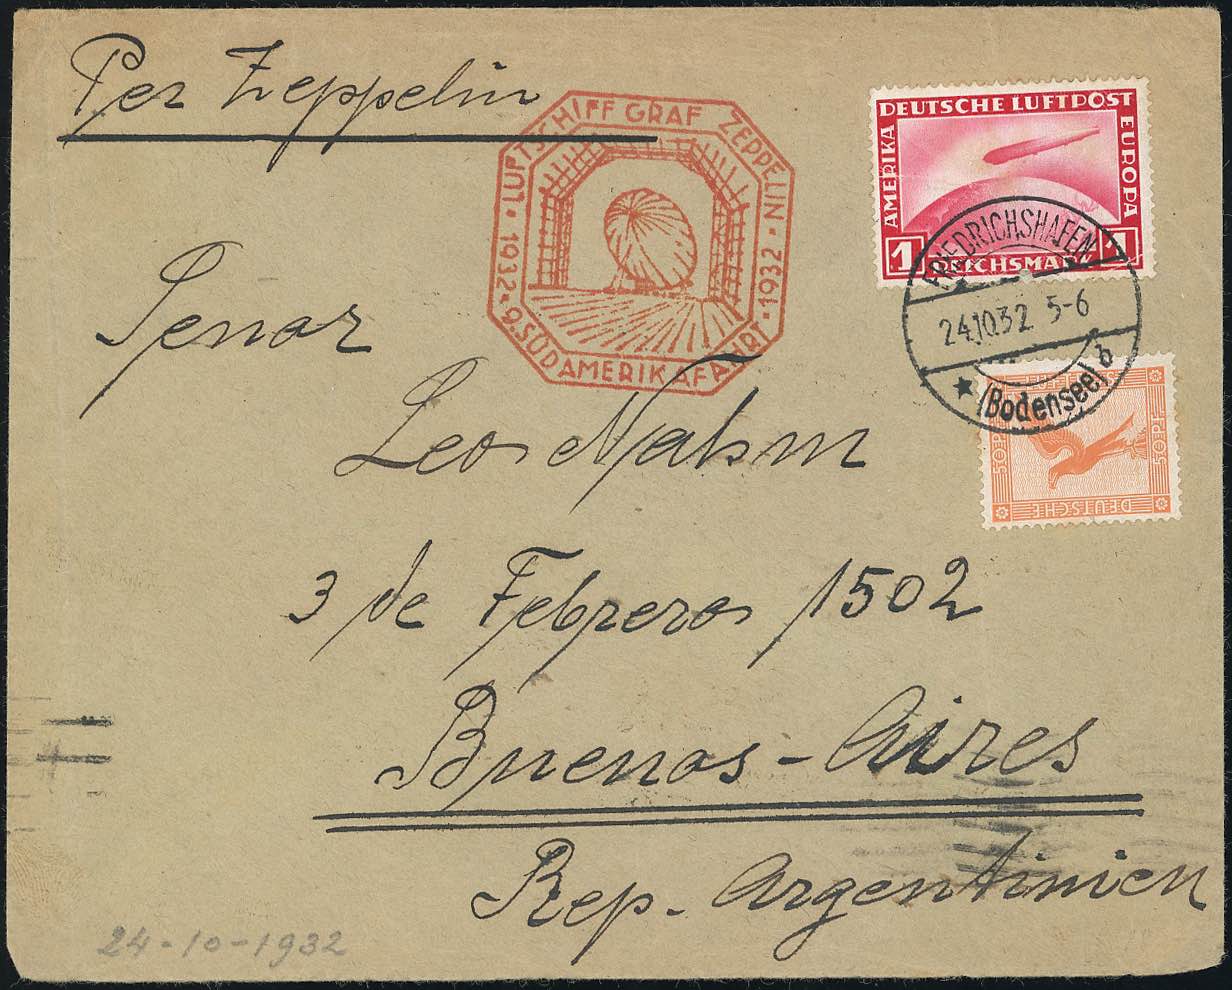 Per Zeppelin
LUFTSCHIFF GRAF ZEPPELIN
· 1932 · 9. SÜDAMERIKAFAHRT · 1932 ·
DEUTSCHE LUFTPOST
AMERIKA
EUROPA
1 1
REICHSMARK
FRIEDRICHSHAFEN
24.10.32 5-6
★ (Bodensee) b
50 PF
50 PF
DEUTSCHE
Senor
Leo Nahm
3 de Febrero 1502
Buenos-Aires
Rep. Argentinien
24-10-1932